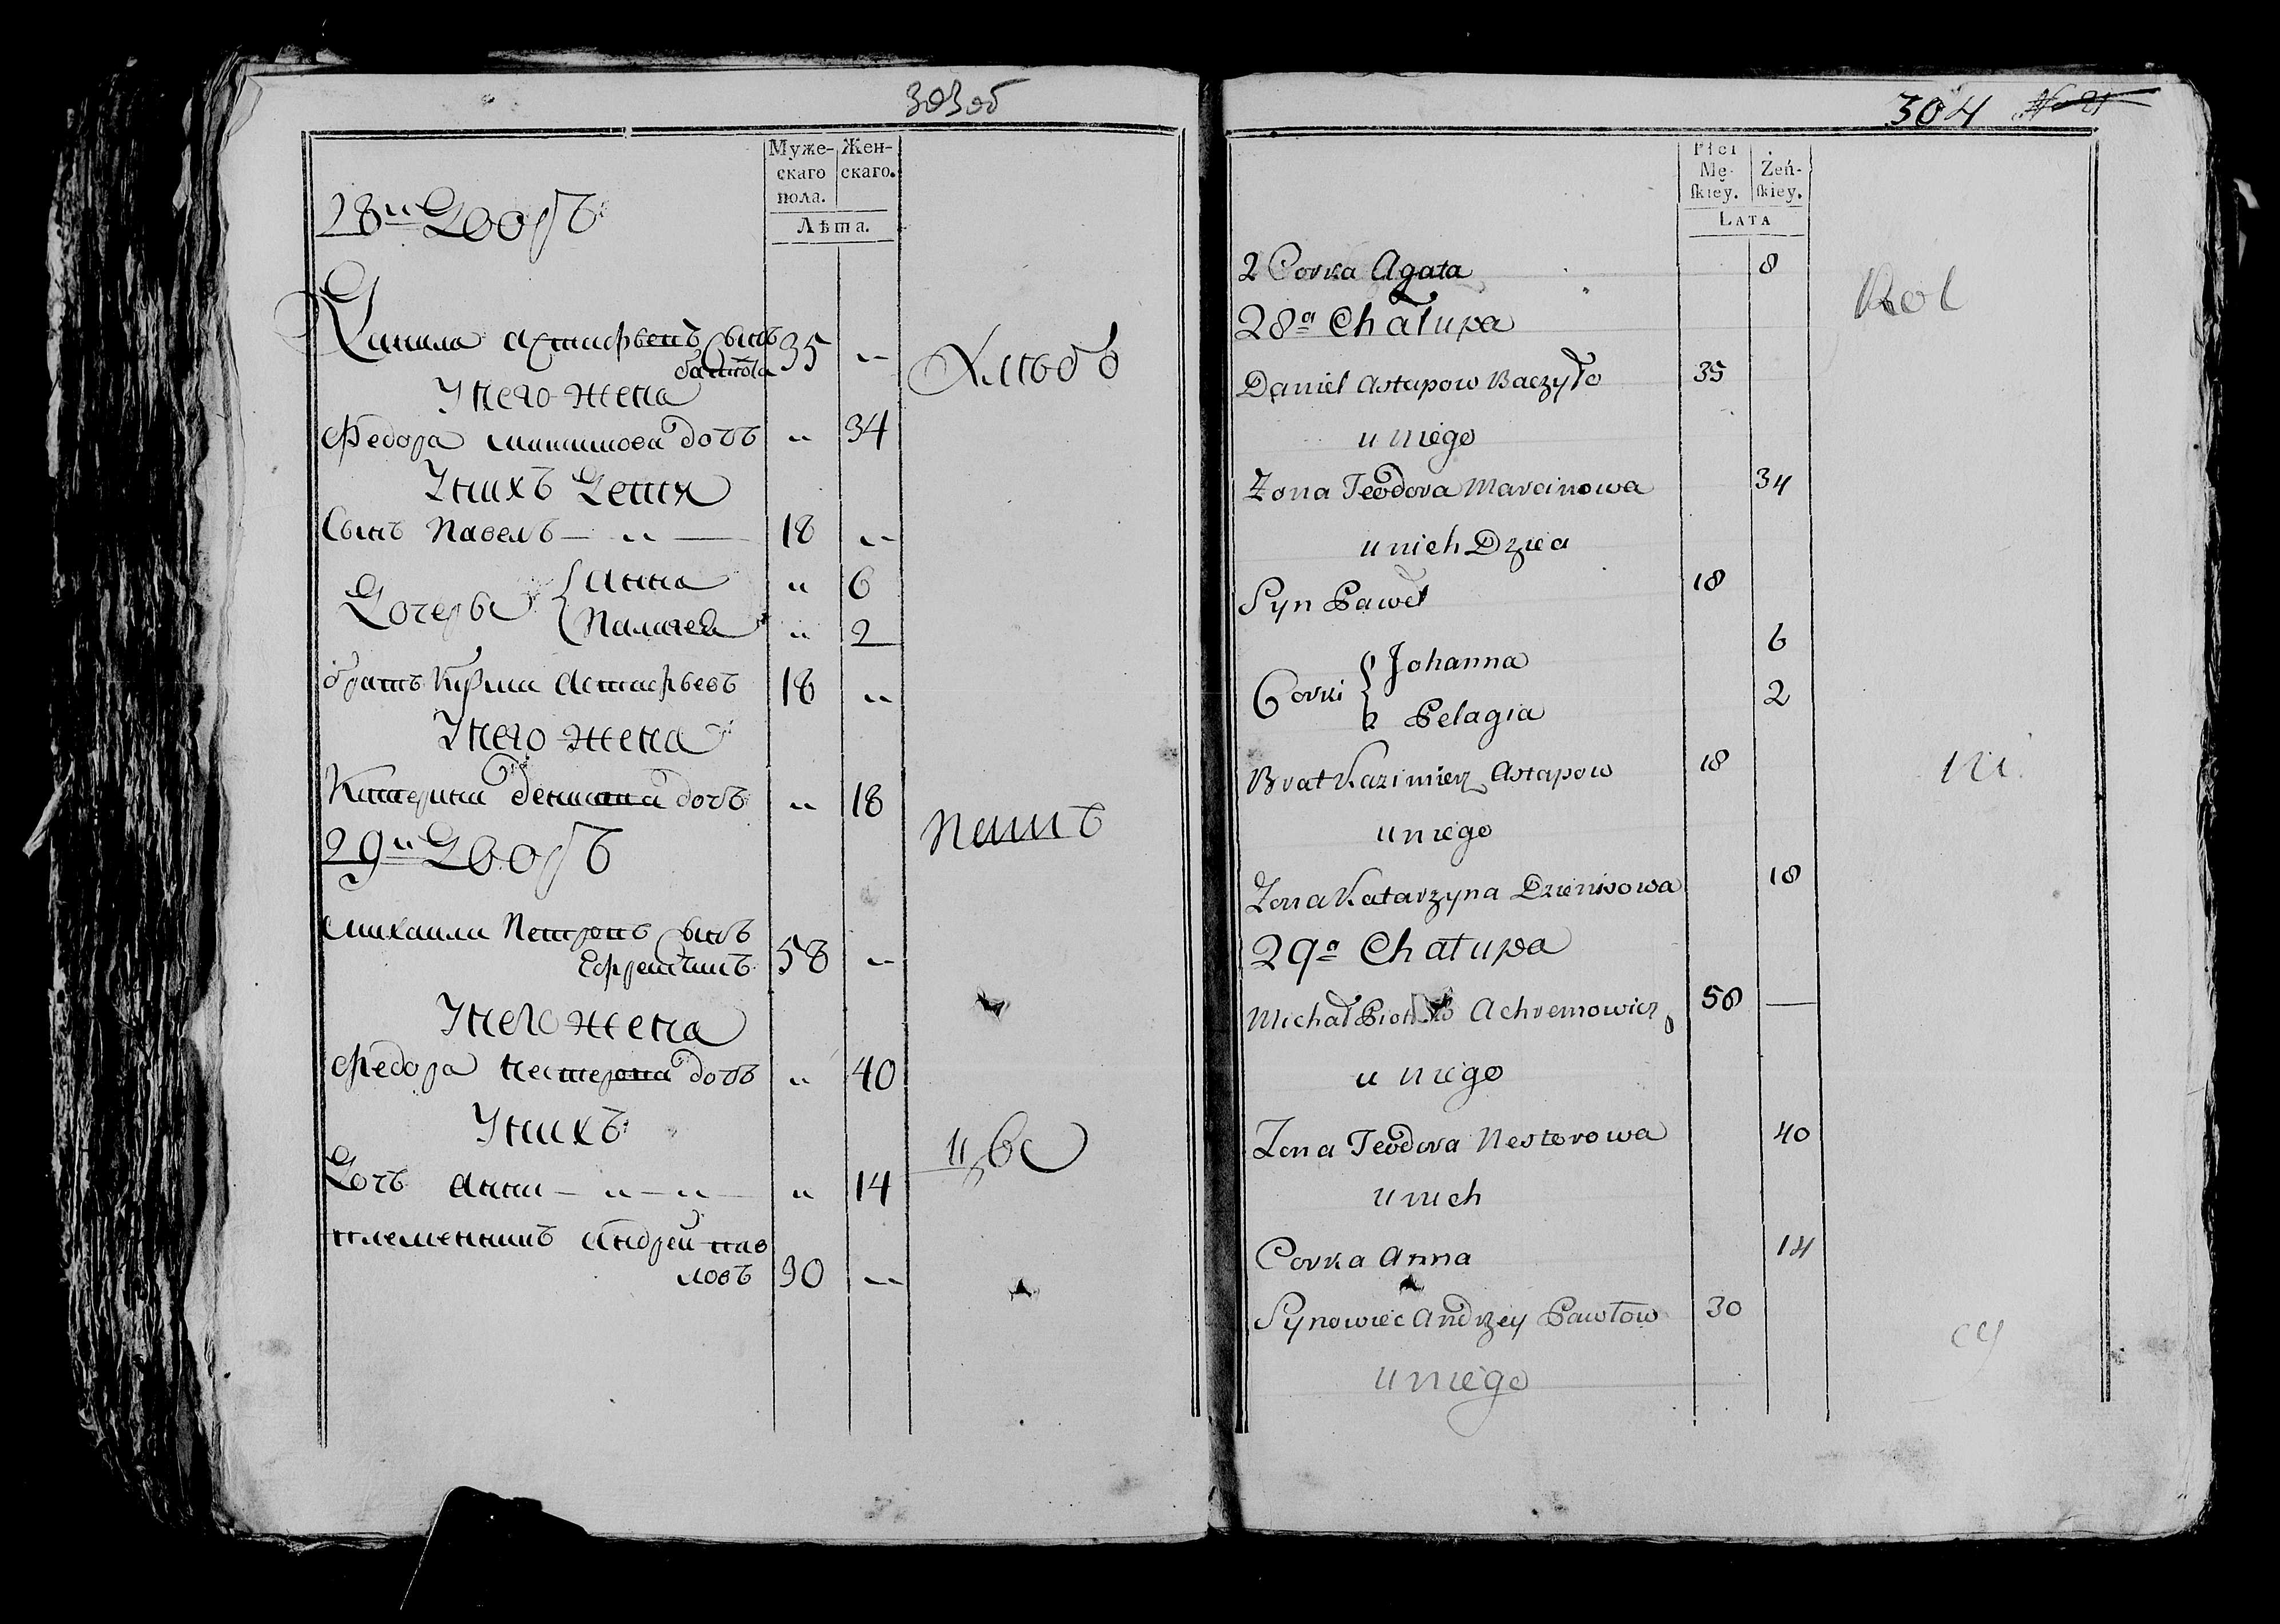 303об
Муже-
скаго
пола.
Жен-
скаго.
Лѣта.
28й Дворъ
Данила Астафьевъ Сынъ 35 "
У него жена
Федора мартинова дочь " 34
У нихъ Дети
Сынъ Павелъ — " — 18 "
Дочери { анна " 6
Палагея " 2
братъ Кузма Астафьевъ 18 "
У него жена
Катерина денисова дочь " 18
29й Дворъ
михаила Петровъ Сынъ
Ефремовичъ 58 "
У него жена
Федора нестерова дочь " 40
У нихъ
Дочь анна — " — " — " 14
племенникъ андрей пав
ловъ 30 "
Хлѣбо
паш
цы
304 No 21
Płci
Mę-
skiey.
Żeń-
skiey.
LATA
2 Corka Agata 8
28a Chałupa
Daniel Astapow Baczyło 35
u niego
Żona Teodora Marcinowa 34
u nich Dzieci
Syn Paweł 18
Corki { Johanna 6
Pelagia 2
Brat Kazimierz Astapow 18
u niego
Żona Katarzyna Dzienisowa 18
29a Chałupa
Michał Achremowicz 58 —
u niego
Żona Teodora Nesterowa 40
u nich
Corka Anna 14
Synowiec Andrzey Pawłow 30
u niego
Rol
ni
cy